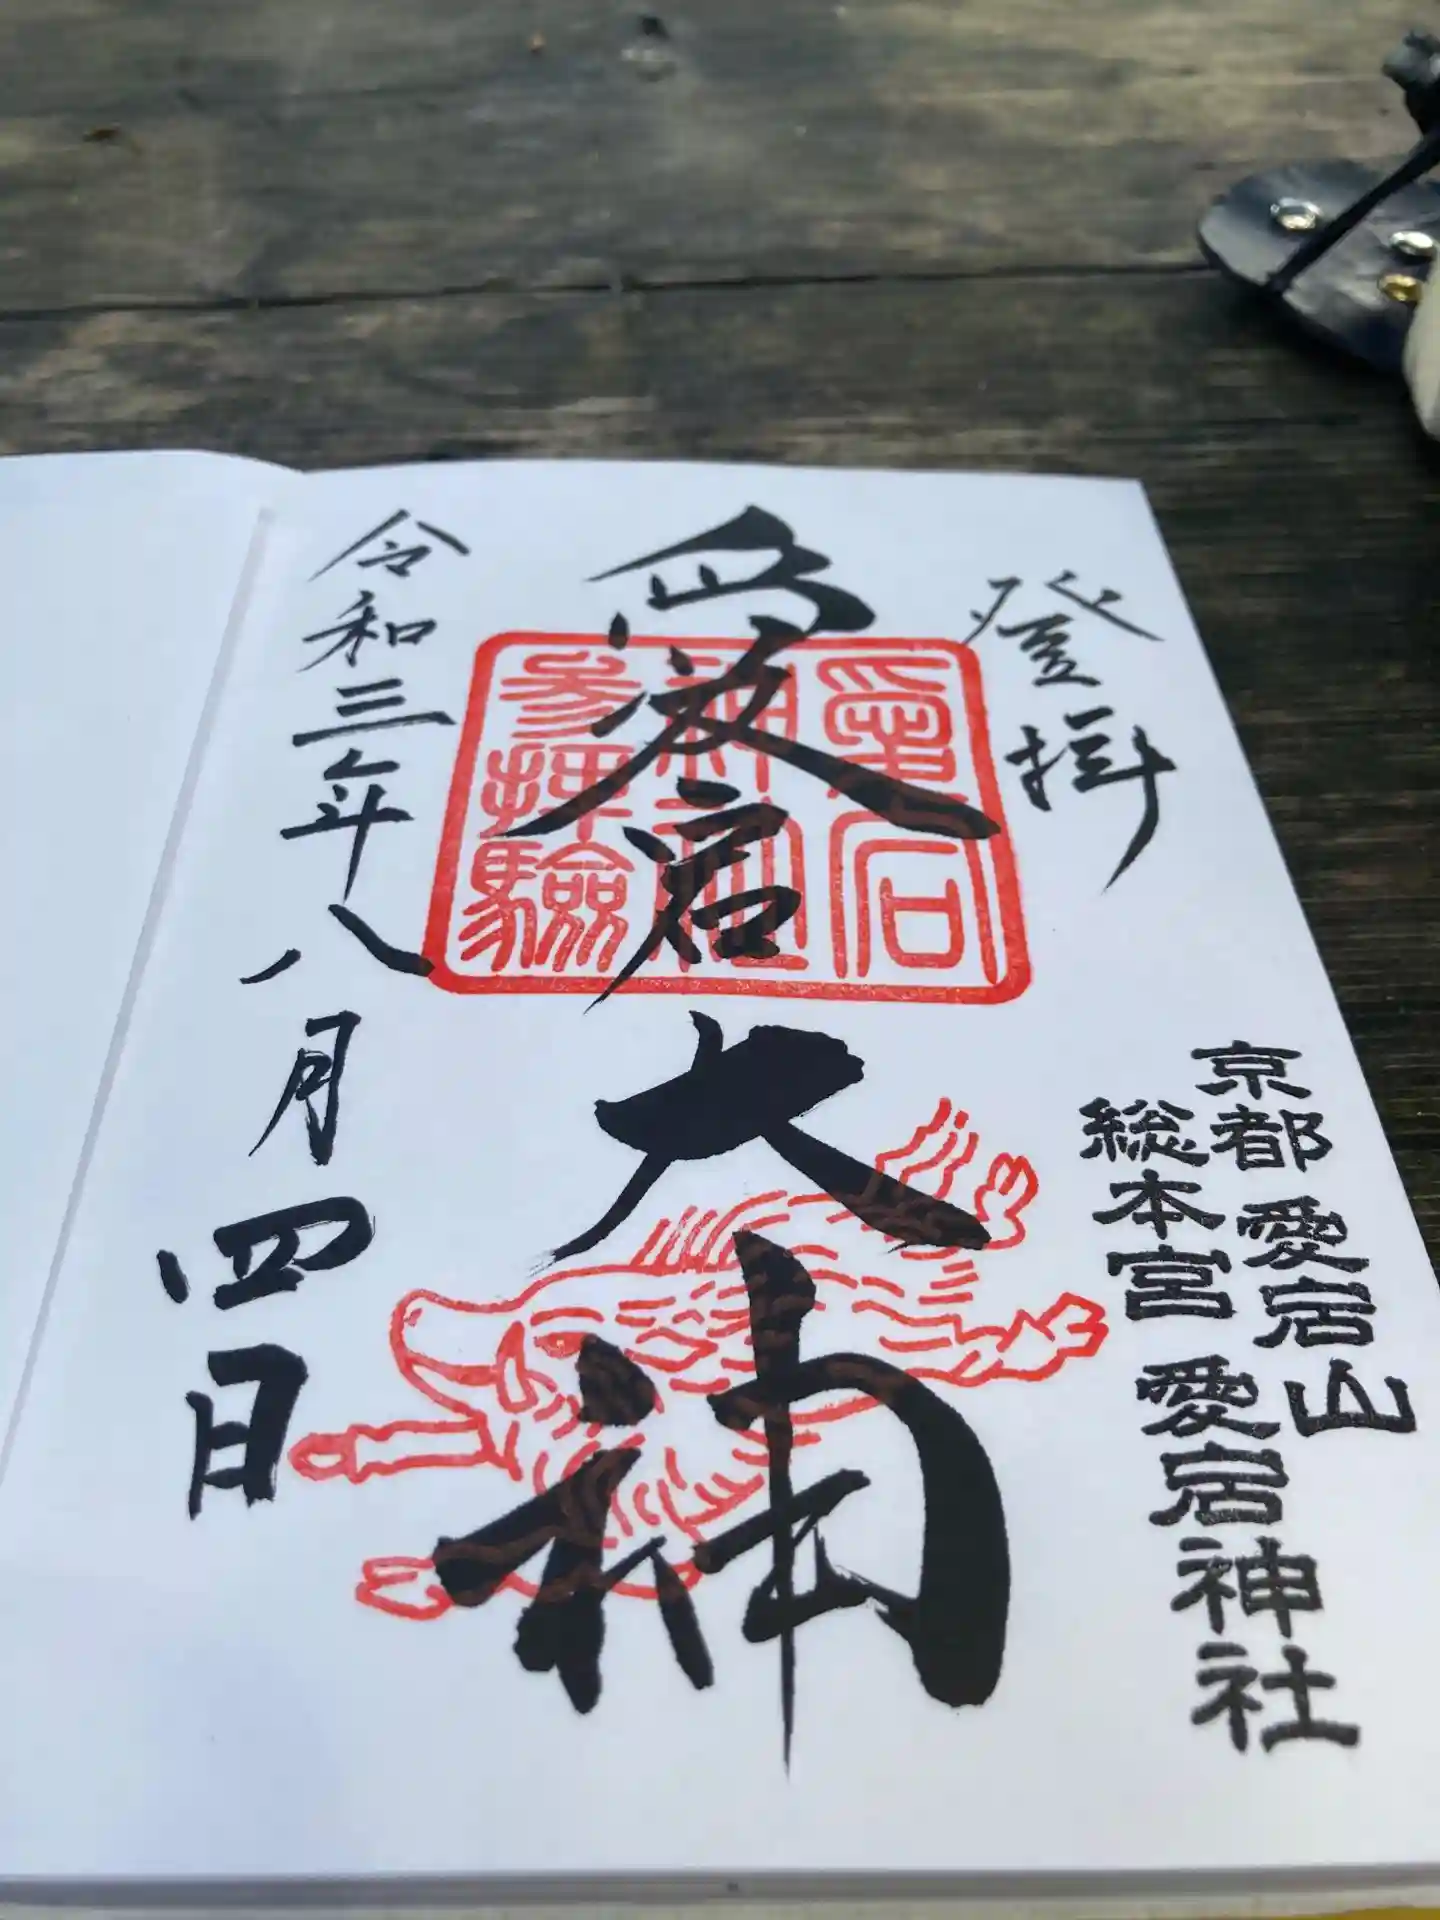 登拝
京都 愛宕山
総本宮 愛宕神社
愛宕大神
愛宕
神社
参拝験
令和三年八月四日